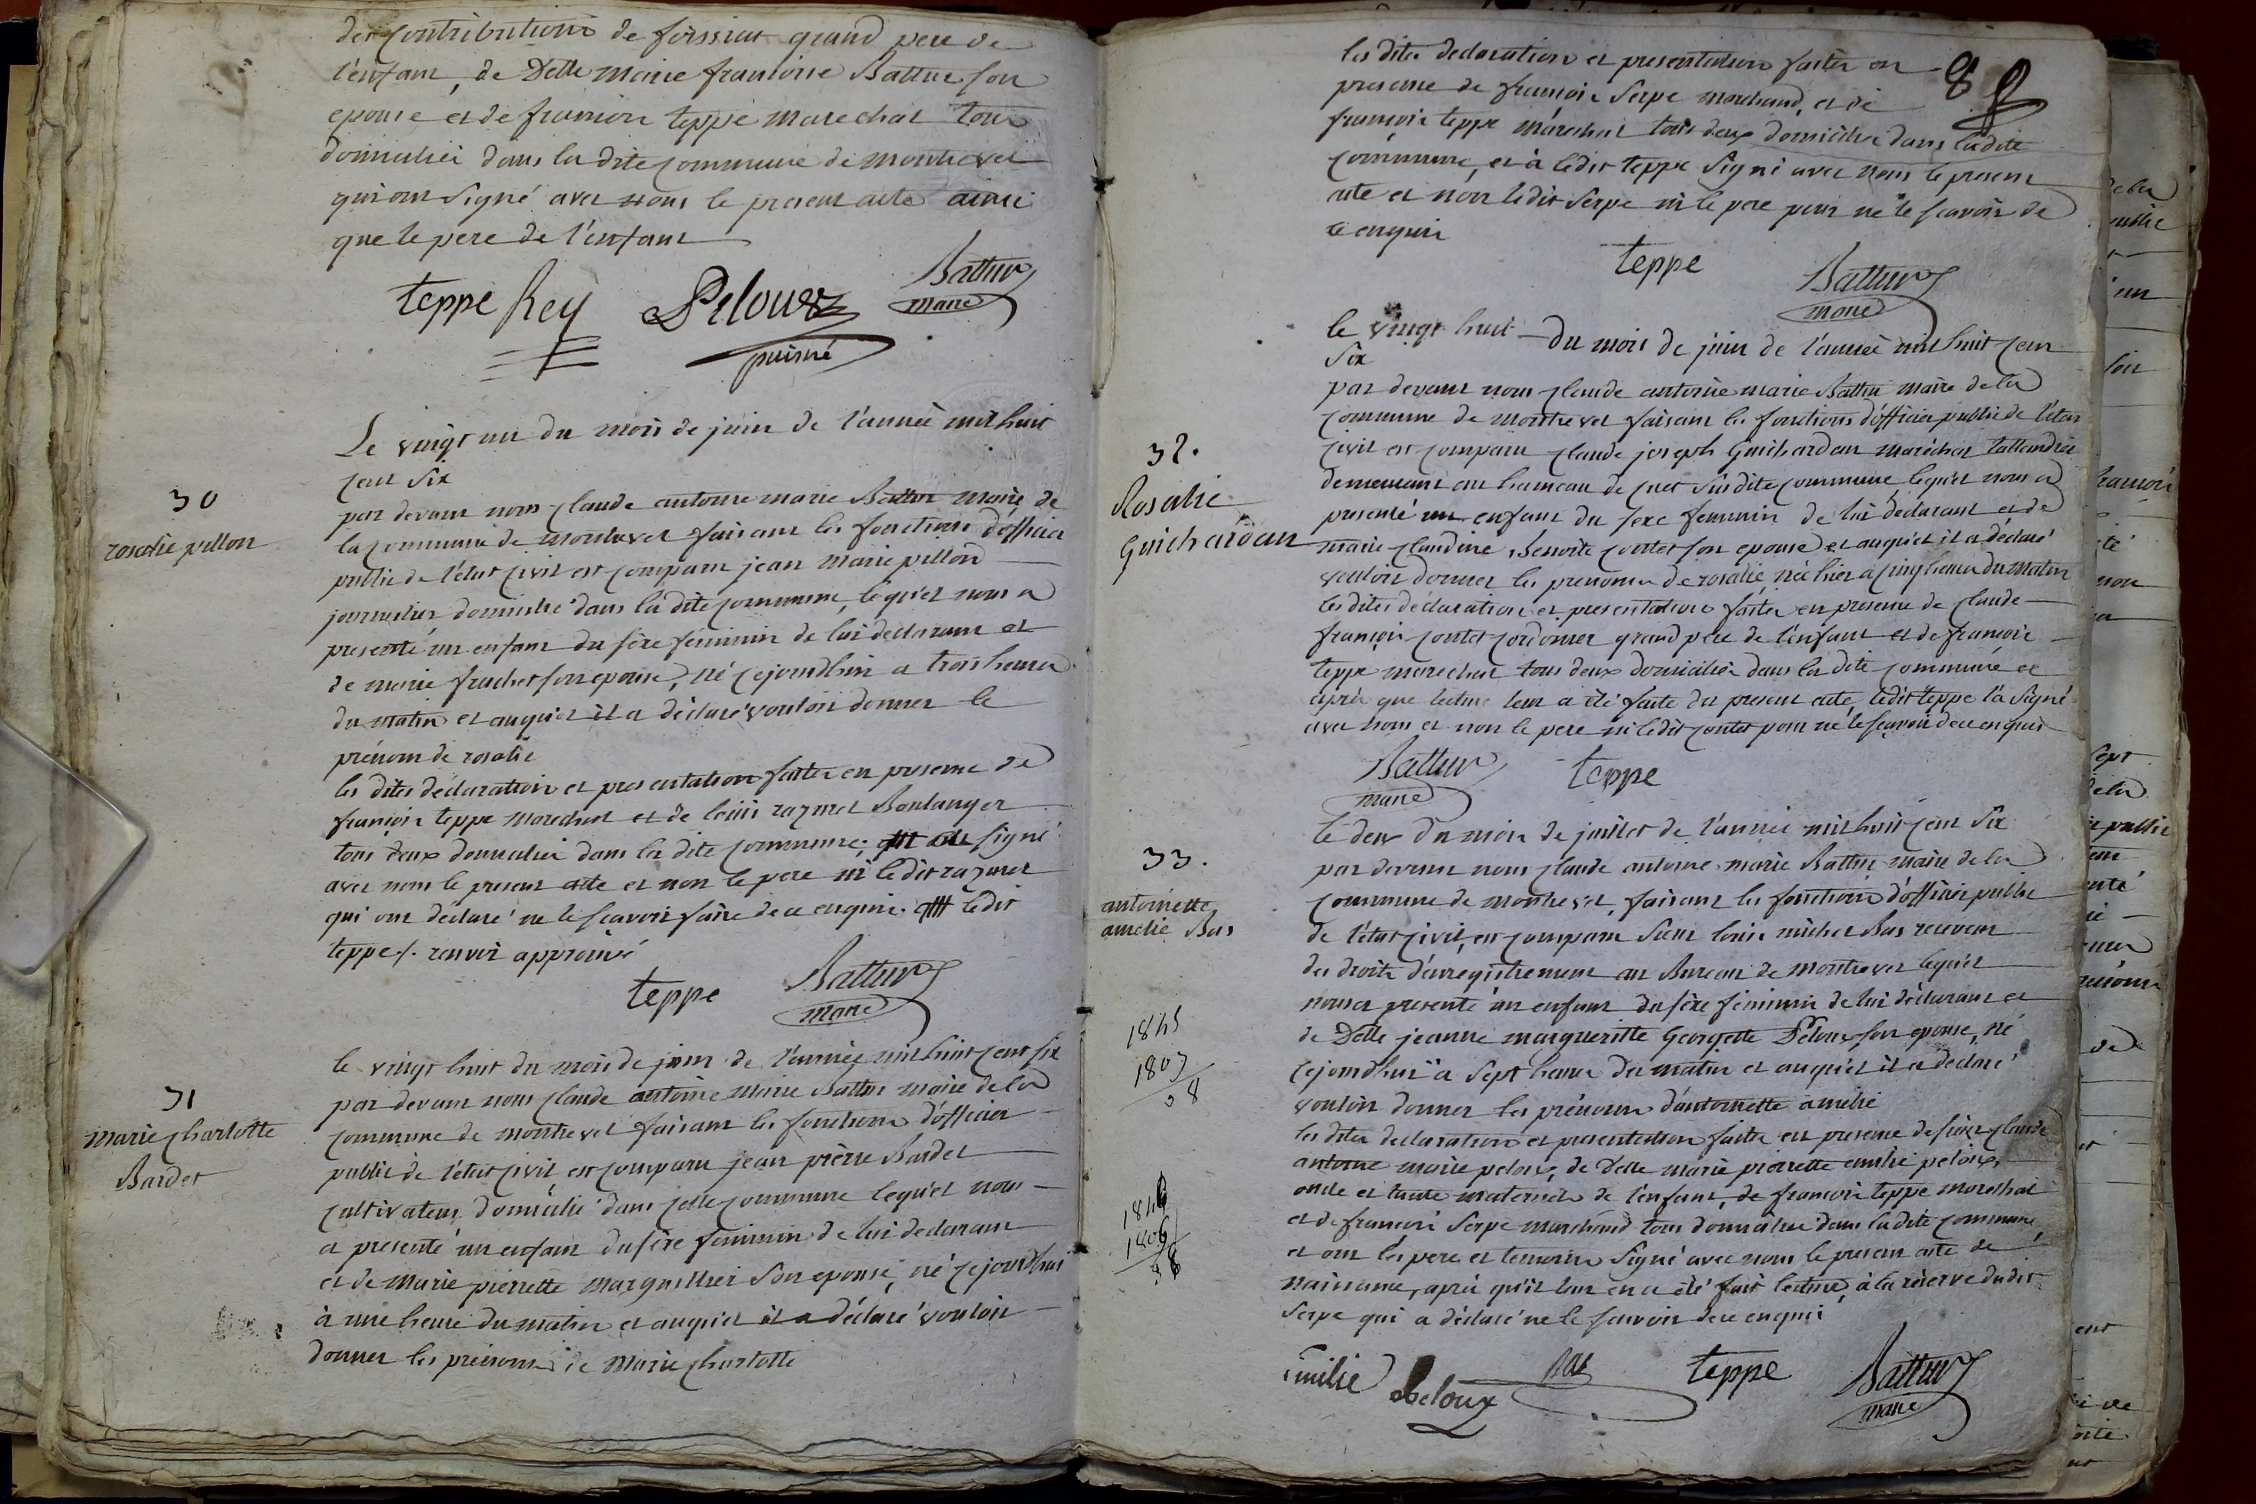 des contributions de foissiat grand pere de
l'enfant, de Delle marie francoise Battur son
epouse et de francois teppe marechal tous
domiciliés dans la dite commune de montrevel
qui ont signé avec nous le present acte ainsi
que le pere de l'enfant
teppe Rey Peloux Battur
puisné maire
Le vingt un du mois de juin de l'année mil huit
cent six
30
rosalie pillon
par devant nous claude antoine marie Battur maire de
la commune de montrevel faisant les fonctions d'officier
public de l'état civil est comparu jean marie pillon
journalier domicilié dans la dite commune, lequel nous a
presenté un enfant du sexe féminin de lui déclarant et
de marie frachet son epouse, né cejourdhui a trois heures
du matin et auquel il a déclaré vouloir donner le
prénom de rosalie
les dites déclaration et presentation faites en presence de
francois teppe marechal et de louis razurel Boulanger
tous deux domiciliés dans la dite commune, signé
avec nous le present acte et non le pere ni ledit razurel
qui ont déclaré ne le scavoir faire de ce enquis. ledit
teppe /. renvoi approuvé
teppe Battur
maire
31
marie charlotte
Bardet
le vingt huit du mois de juin de l'année mil huit cent six
par devant nous claude antoine marie Battur maire de la
commune de montrevel faisant les fonctions d'officier
public de l'état civil, est comparu jean pierre Bardet
cultivateur domicilié dans cette commune lequel nous
a presenté un enfant du sexe féminin de lui declarant
et de Marie pierrette marguillier son epouse, né cejourdhui
à une heure du matin et auquel il a déclaré vouloir
donner les prénoms de Marie charlotte
8
les dites declaration et presentation faites en
presence de francois Serpe marchand, et de
francois teppe maréchal tous deux domiciliés dans la dite
commune, et à ledit teppe signé avec nous le present
acte et non ledit Serpe ni le pere pour ne le scavoir de
ce enquis
teppe Battur
maire
le vingt huit du mois de juin de l'année mil huit cent
six
32.
Rosalie
Guichardan
par devant nous claude antoine marie Battur maire de la
commune de montrevel faisant les fonctions d'officier public de l'état
civil est comparu claude joseph Guichardan maréchal tallandier
demeurant au hameau de cuet susdite commune, lequel nous a
presenté un enfant du sexe feminin de lui déclarant et de
marie claudine Benoite contet son epouse et auquel il a déclaré
vouloir donner les prenoms de rosalie, née hier a cinq heures du matin
les dites déclaration et presentation faites en presence de claude
francois contet cordonier grand père de l'enfant et de francois
teppe marechal tous deux domiciliés dans la dite commune et
après que lecture leur a été faite du present acte, ledit teppe l'a signé
avec nous et non le pere ni ledit contet pour ne le scavoir de ce enquis
Battur teppe
maire
33.
antoinette
amelie Bas
le deux du mois de juillet de l'année mil huit cent six
par devant nous claude antoine marie Battur maire de la
commune de montrevel, faisant les fonctions d'officier public
de l'état civil, est comparu sieur louis michel Bas receveur
des droits d'enregistrement au Bureau de montrevel lequel
nous a presenté un enfant du sexe féminin de lui déclarant et
de Delle jeanne margueritte Georgette Peloux son epouse, né
cejourdhui a sept heures du matin et auquel il a déclaré
vouloir donner les prénoms d'antoinette amelie
les dites declaration et presentation faites en presence de sieur claude
antoine marie peloux, de Delle marie pierrette emilie peloux,
oncle et tante maternels de l'enfant, de francois teppe marechal
et de francois Serpe marchand tous domiciliés dans la dite commune
et ont les pere et temoins signé avec nous le present acte de
naissance, après qu'il leur en a été fait lecture, à la réserve dudit
Serpe qui a déclaré ne le scavoir de ce enquis
1845
1807
38
1844
1806
38
Emilie Peloux Bas teppe Battur
maire